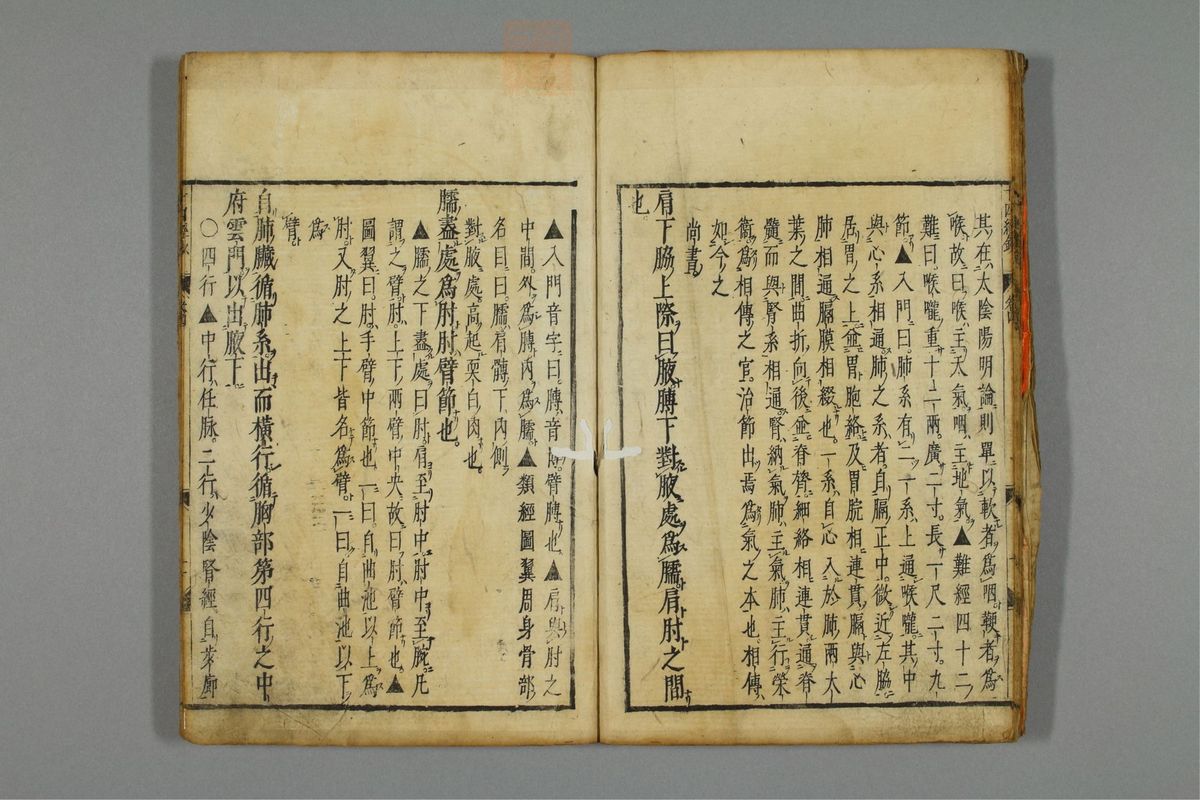 其在太陰陽明論則單以軟者為咽鞕者為
喉故曰喉主天氣咽主地氣▲難經四十二
難曰喉嚨重十二兩廣二寸長一尺二寸九
節▲入門曰肺系有二一系上通喉嚨其中
與心系相通肺之系者自膈正中微近左脇
居胃之上並胃胞絡及胃脘相連貫膈與心
肺相通膈膜相綴也一系自心入於肺兩大
葉之間曲折向後並脊膂細絡相連貫通脊
髓而與腎系相通腎納氣肺主氣肺主行榮
衞為相傳之官治節出焉為氣之本也相傳
如今之
尚書
肩下脇上際曰腋膊下對腋處為臑肩肘之間
也
▲入門音字曰膊音博臂膊也▲肩與肘之
中間外為膊內為臑▲類經圖翼周身骨部
名目曰臑肩髆下內側
對腋處高起耎白肉也
臑盡處為肘肘臂節也
▲臑之下盡處曰肘肩至肘中肘中至腕凡
謂之臂肘上下兩臂中央故曰肘臂節也▲
圖翼曰肘手臂中節也一曰自曲池以上為
肘又肘之上下皆名為臂一曰自曲池以下
為
臂
自肺臟循肺系出而橫行循胸部第四行之中
府雲門以出腋下
○四行▲中行任脉二行少陰腎經自步廊